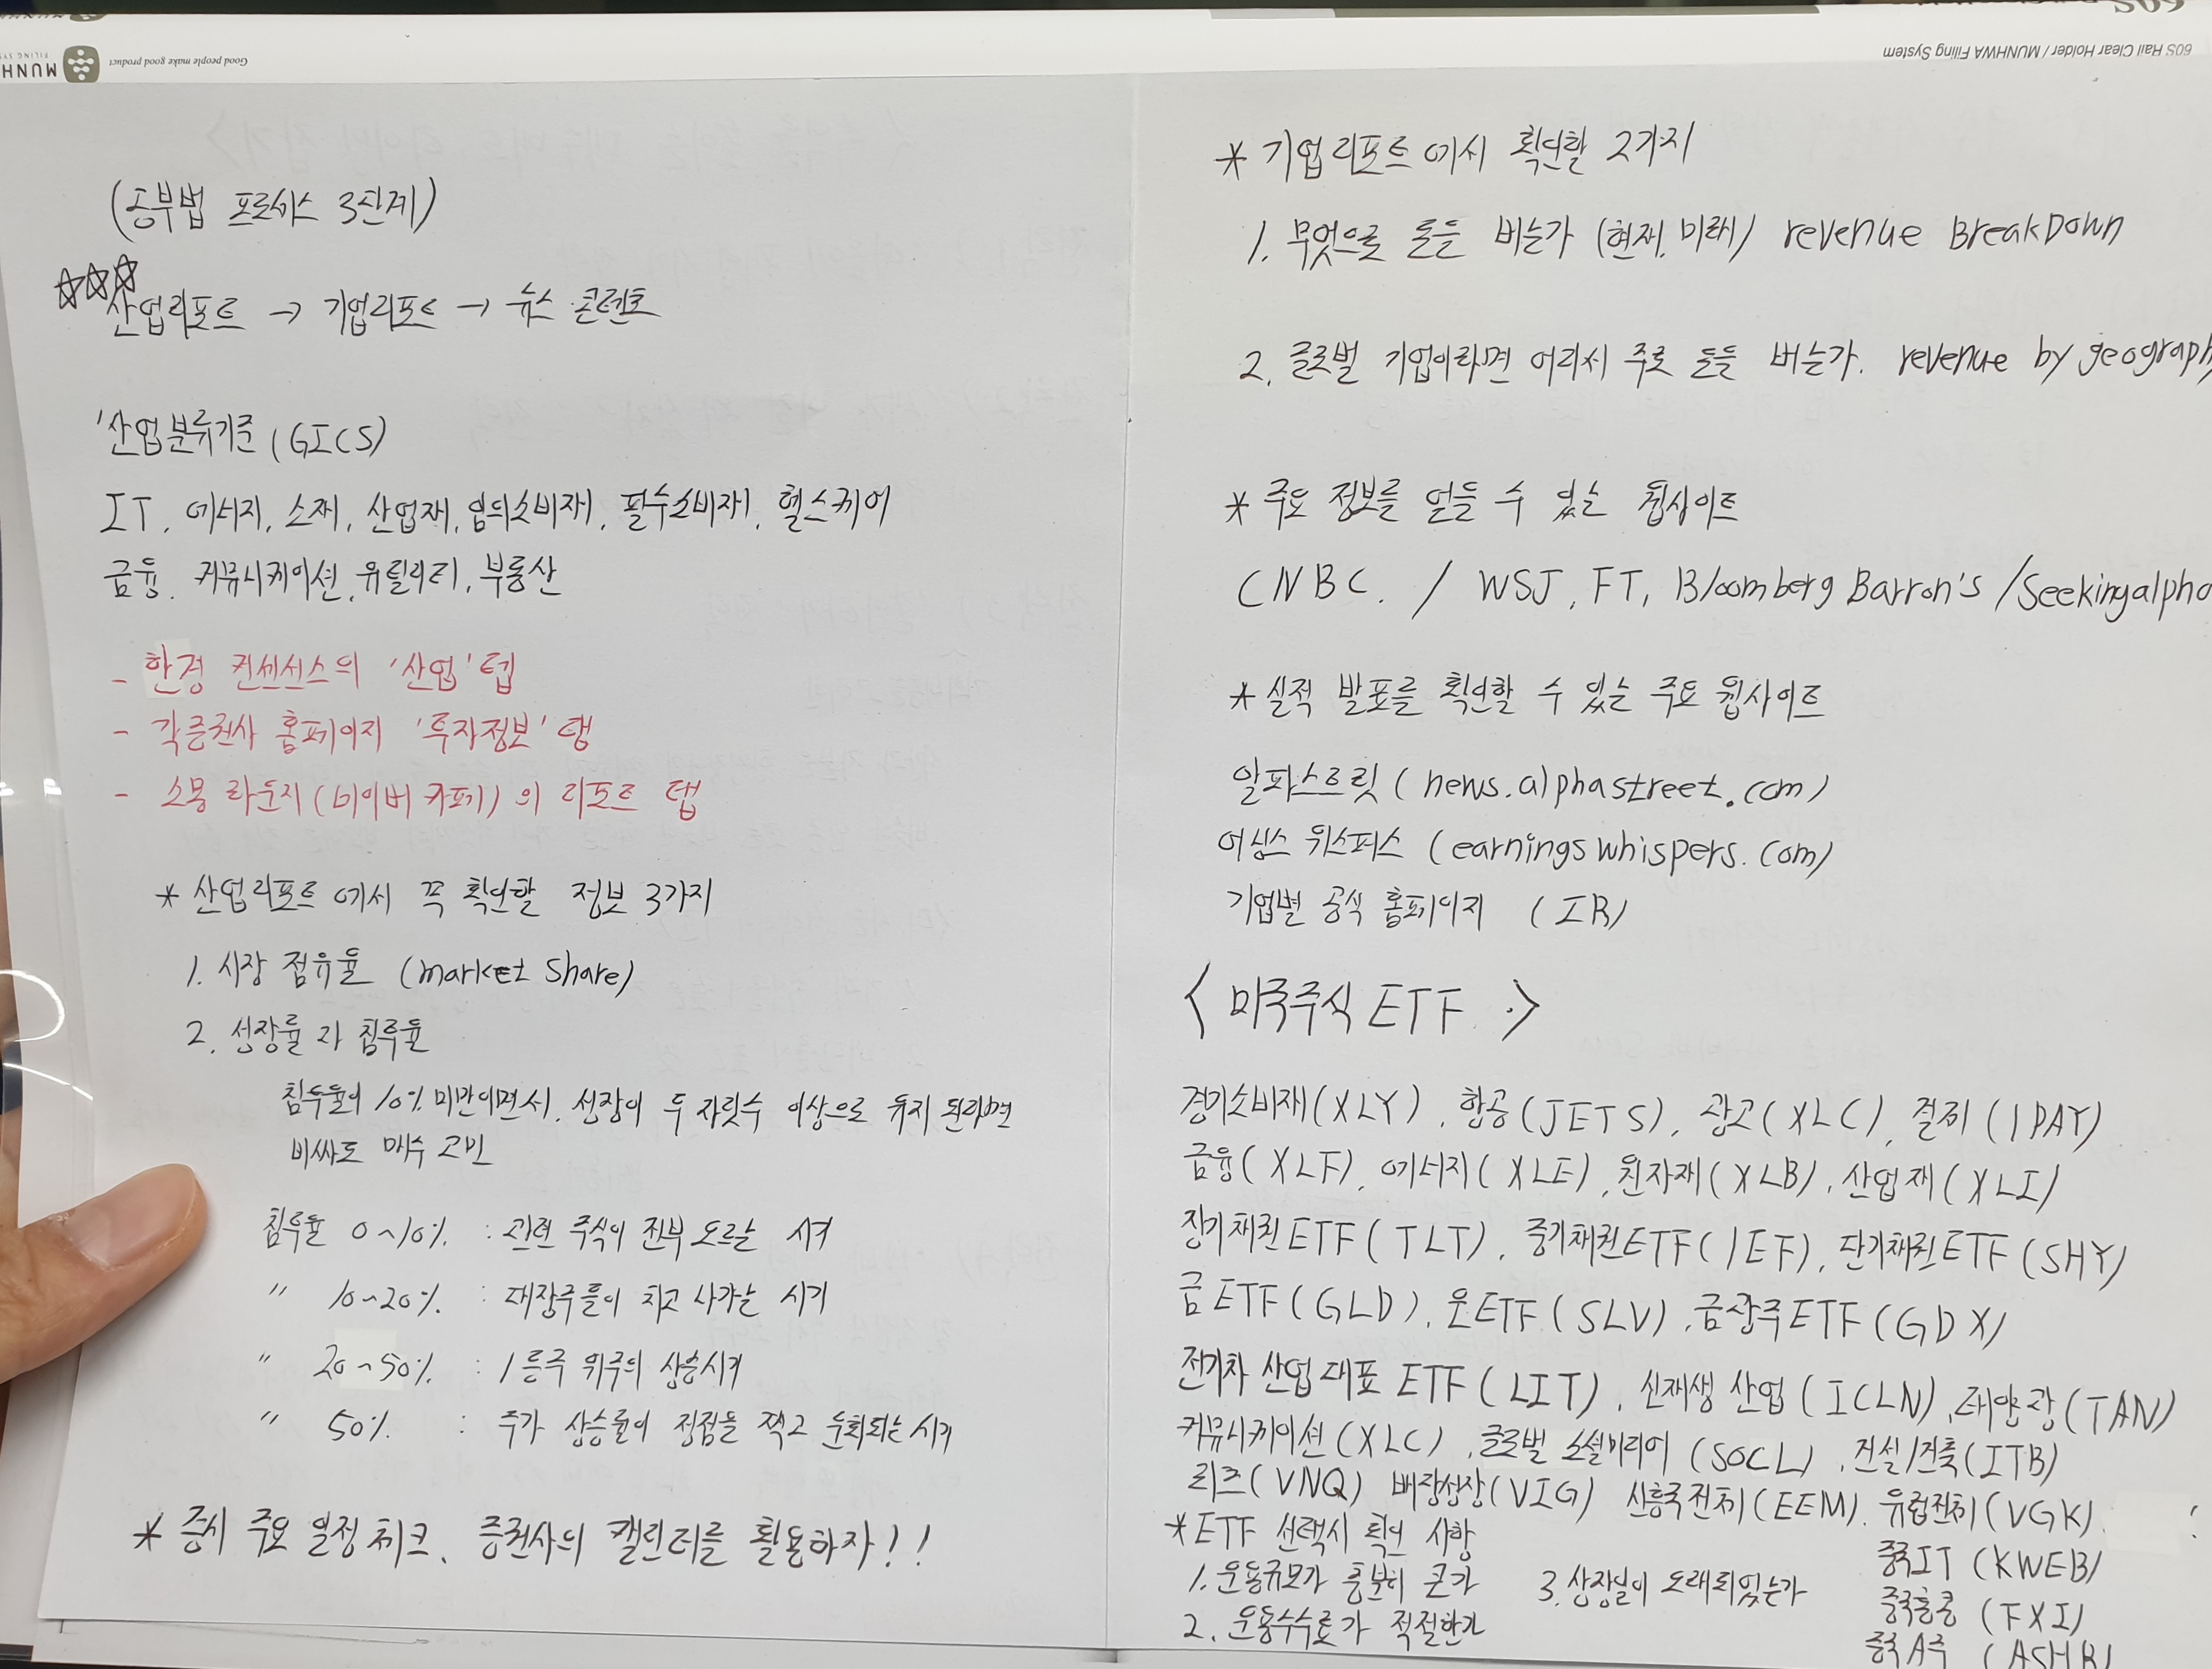 Good people make good product
60S Rail Clear Holder / MUNHWA Filing System
(공부법 프로세스 3단계)
산업리포트 → 기업리포트 → 뉴스 콘텐츠
'산업분류기준 (GICS)
IT, 에너지, 소재, 산업재, 임의소비재, 필수소비재, 헬스케어
금융, 커뮤니케이션, 유틸리티, 부동산
- 한경 컨센서스의 '산업' 텝
- 각증권사 홈페이지 '투자정보' 탭
- 소몽 라운지 (네이버 카페) 의 리포트 탭
* 산업리포트에서 꼭 확인할 정보 3가지
1. 시장 점유율 (market share)
2. 성장률과 침투율
침투율이 10% 미만이면서, 성장이 두 자릿수 이상으로 유지 된다면
비싸도 매수 고민
침투율 0~10% : 관련 주식이 전부 오르는 시기
" 10~20% : 대장주들이 치고 나가는 시기
" 20~50% : 1등주 위주의 상승시기
" 50% : 주가 상승률이 정점을 찍고 둔화되는 시기
* 증시 주요 일정 체크, 증권사의 캘린더를 활용하자!!
* 기업리포트에서 확인할 2가지
1. 무엇으로 돈을 버는가 (현재, 미래) revenue BreakDown
2. 글로벌 기업이라면 어디서 주로 돈을 버는가. revenue by geograph
* 주요 정보를 얻을 수 있는 웹사이트
CNBC. / WSJ, FT, Bloomberg Barron's /Seekingalpha
* 실적 발표를 확인할 수 있는 주요 웹사이트
알파스트릿 (news.alphastreet.com)
어닝스 위스퍼스 (earningswhispers.com)
기업별 공식 홈페이지 (IR)
< 미국주식 ETF >
경기소비재(XLY), 항공(JETS), 광고(XLC), 결제(IPAY)
금융(XLF), 에너지(XLE), 원자재(XLB), 산업재(XLI)
장기채권ETF(TLT), 중기채권ETF(IEF), 단기채권ETF(SHY)
금ETF(GLD), 은ETF(SLV), 금광주ETF(GDX)
전기차 산업 대표 ETF(LIT), 신재생 산업(ICLN), 태양광(TAN)
커뮤니케이션(XLC), 글로벌 소셜미디어(SOCL), 건설/건축(ITB)
리츠(VNQ) 배당성장(VIG) 신흥국전체(EEM). 유럽전체(VGK)
중국IT (KWEB)
중국홍콩 (FXI)
중국A주 (ASHR)
*ETF 선택시 확인 사항
1. 운용규모가 충분히 큰가 3. 상장일이 오래되었는가
2. 운용수수료가 적절한가